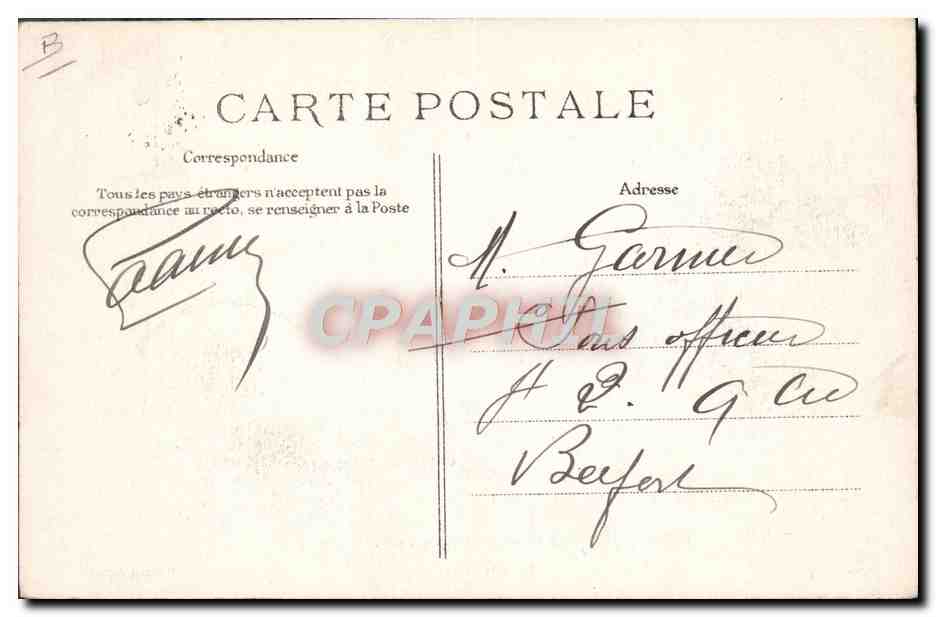 B
CARTE POSTALE
Correspondance
Tous les pays étrangers n'acceptent pas la
correspondance au recto, se renseigner à la Poste
Adresse
M. Garnier
Sous officier
42. 9 Cie
Belfort
CPAPHIL